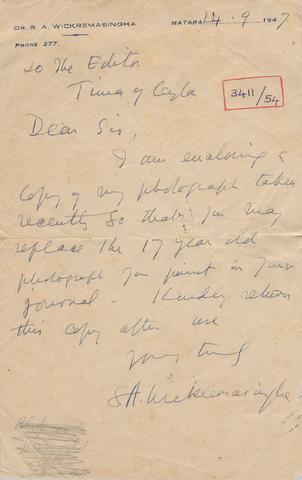 DR. S. A. WICKREMASINGHA
MATARA 14.9.1947
PHONE 277.
To The Editor
Times of Ceylon
3411/54
Dear Sir,
I am enclosing a
copy of my photograph taken
recently so that you may
replace the 17 year old
photograph you print in your
journal - Kindly return
this copy after use
yours truly
S.A. Wickremasingha